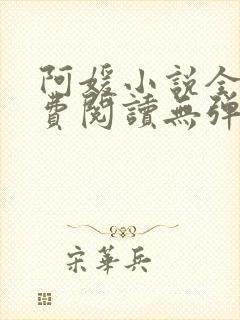 阿媛小说全
費閱讀無彈
宋華兵